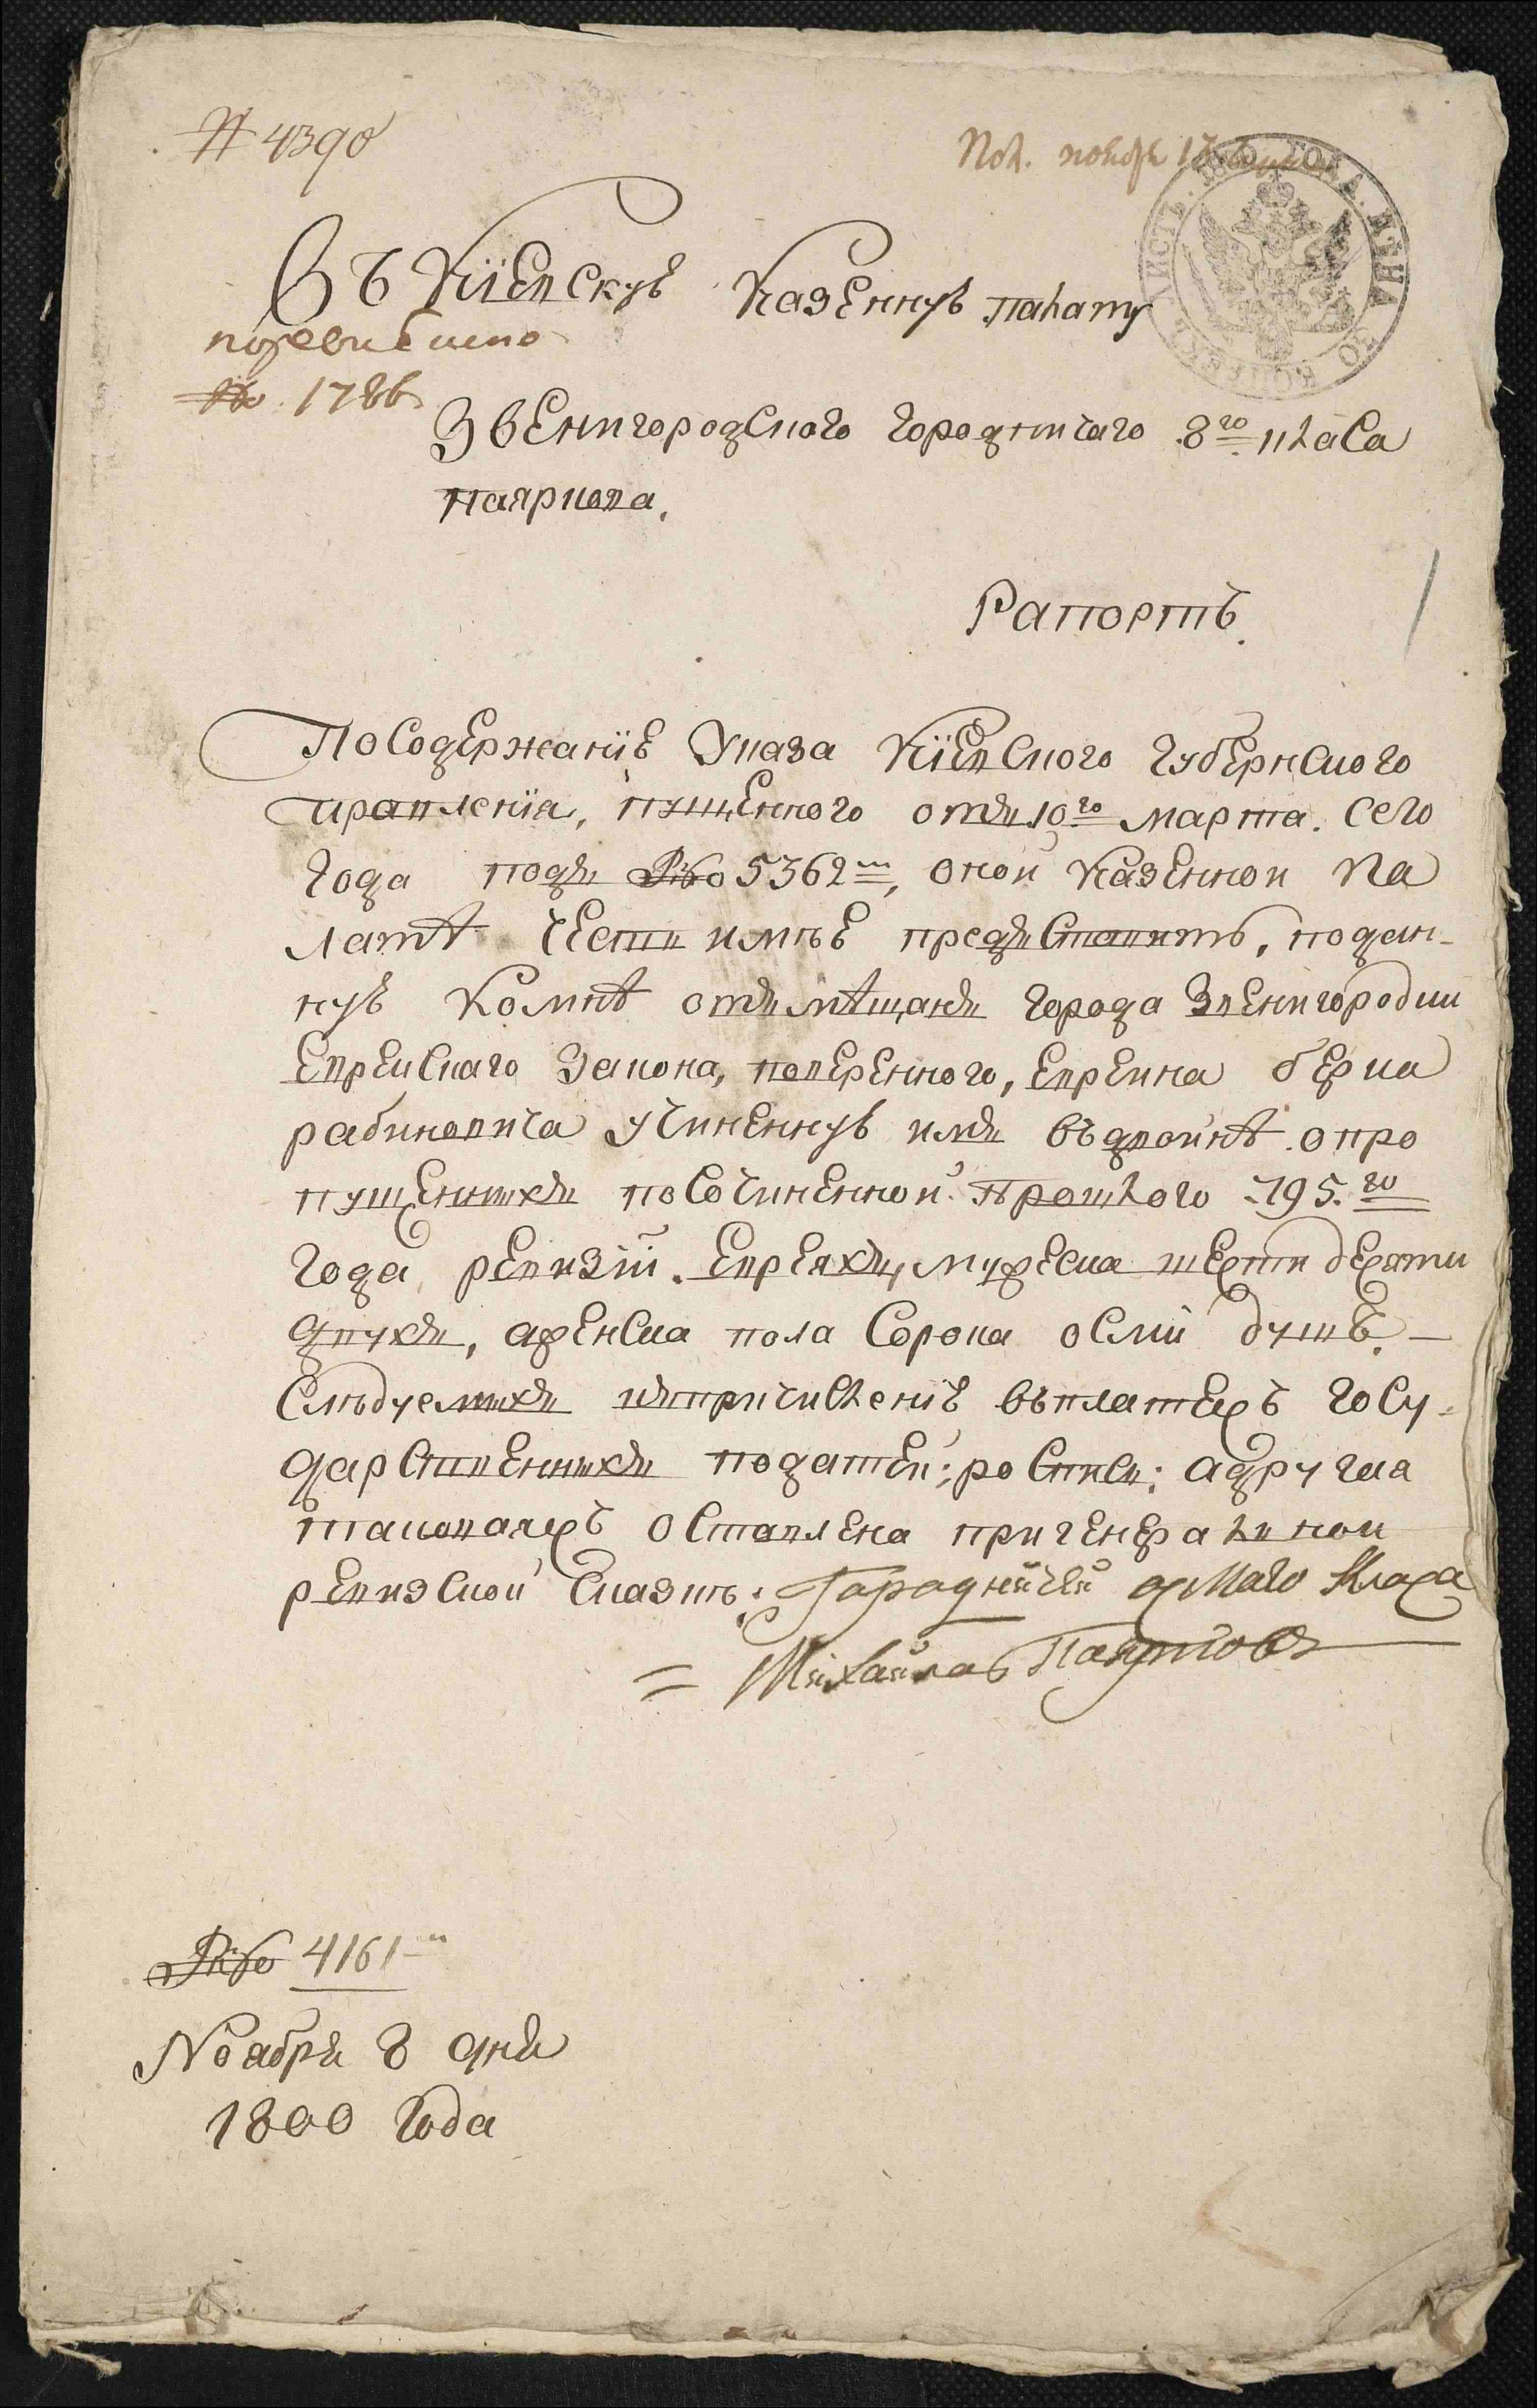 № 4390
Пол. ноября 13
ЛИСТЪ. 1800. ГОДА. ЦѢНА
КОПѢЕКЪ
Въ Кіевскую Казенную палату
по ревизскимъ
№ 1786
Звенигородского городничаго 8го класа
Паяркова,
Рапортъ.
По Содержанію Указа Кіевского губернского
правленія, пущенного отъ 10го марта. сего
года подъ № 5362мъ, оной Казенной Па
латѣ честь имѣю представить,подан-
ную комнѣ отъ мѣщанъ города Звенигородки
Еврейскаго Закона, поверенного, Евреина берка
рабиновича учиненную имъ въ двойнѣ о про
пущенныхъ по Сочиненной прошлого 795.го
года ревизіи. Евреяхъ, мужеска шести десяти
двухъ, а женска пола Сорока осми душъ. —
Слѣдуемыхъ къ причисленію въ платежъ госу-
дарственныхъ податей; роспись: а другая
таковаяжъ оставлена при генеральной
ревизской сказкѣ: Гараднйчей осмаго Класа
= Михайла Паярковъ
№ 4161
Ноября 8 дня
1800 года